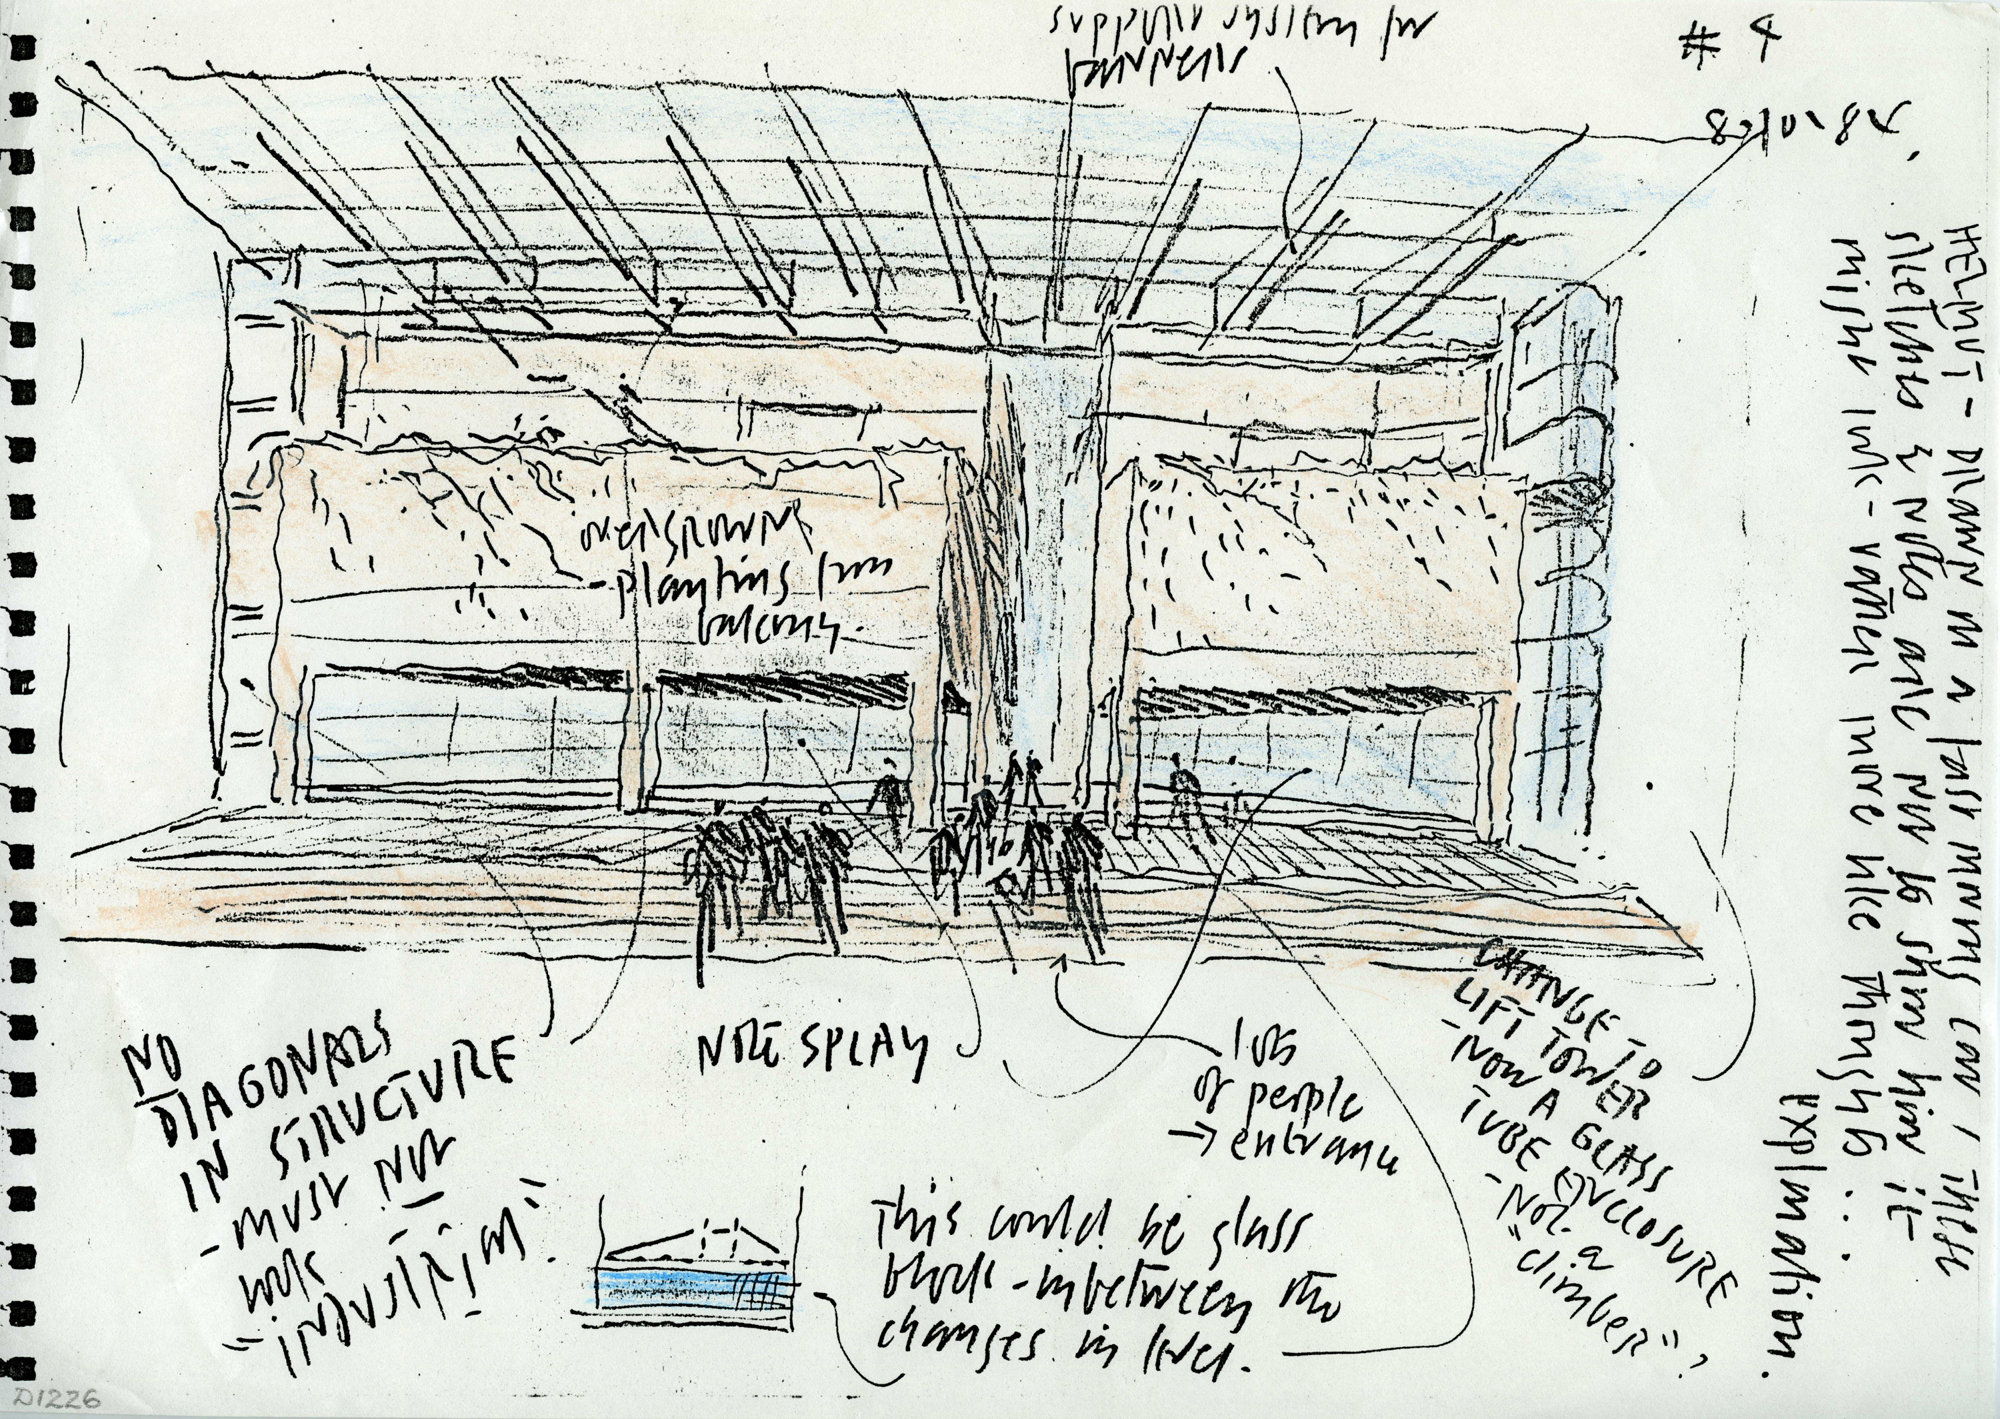 support system for
banners
# 4
HELMUT - DRAWN IN A fast moving car, these
sketches & notes are not to show him it
might look - rather more like thoughts...
Explanation.
overgrowing
- planting from
balcony.
NO
DIAGONALS
IN STRUCTURE
- MUST NOT
look
"INDUSTRIAL".
NOTE SPLAY
lots
of people
→ entrance
CHANGE TO
LIFT TOWER
- NOW A GLASS
TUBE ENCLOSURE
- NOT a
"climber",
This could be glass
block - inbetween the
changes in level.
D1226